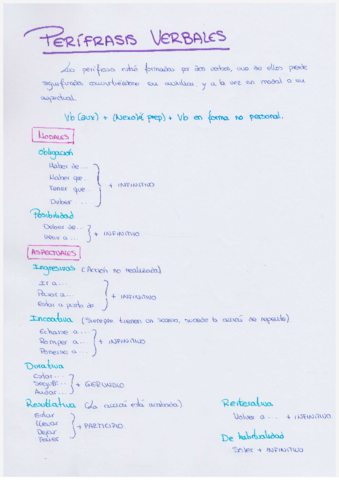 PERÍFRASIS VERBALES
Las perífrasis están formadas por dos verbos, uno de ellos pierde
significado convirtiéndose en auxiliar, y a la vez en modal o en
aspectual.
Vb (aux) + (Nexo/prep) + Vb en forma no personal.
MODALES
Obligación
Haber de...
Haber que...
Tener que...
Deber ...
+ INFINITIVO
Posibilidad
Deber de...
Venir a ...
+ INFINITIVO
ASPECTUALES
Ingresivas (Acción no realizada)
Ir a...
Pasar a...
Estar a punto de...
+ INFINITIVO
Incoativa (Siempre tienen un inicio, cuando la acción se repite)
Echarse a...
Romper a...
Ponerse a...
+ INFINITIVO
Durativa
Estar...
Seguir...
Andar...
+ GERUNDIO
Resultativa (La acción está acabada)
Estar
Llevar
Dejar
Tener
+ PARTICIPIO
Reiterativa
Volver a ... + INFINITIVO
De habitualidad
Soler + INFINITIVO